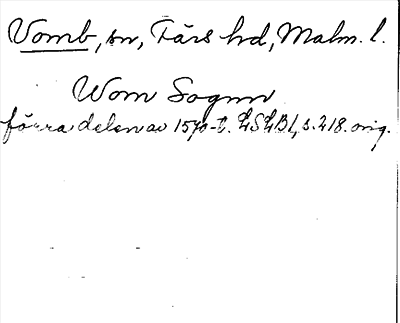 Vomb, sn, Färs hd, Malm. l.
Wom Sognn
förra delen av 1570-t. LSLB1, s. 218. orig.